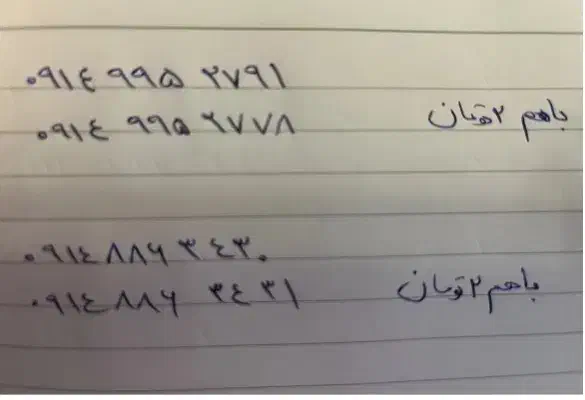 ۰۹۱۴ ۹۹۵ ۲۷۹۱
۰۹۱۴ ۹۹۵ ۲۷۷۸
باهم ۲ تومان
۰۹۱۴ ۸۸۶ ۳۴۳۰
۰۹۱۴ ۸۸۶ ۳۴۳۱
باهم ۲ تومان